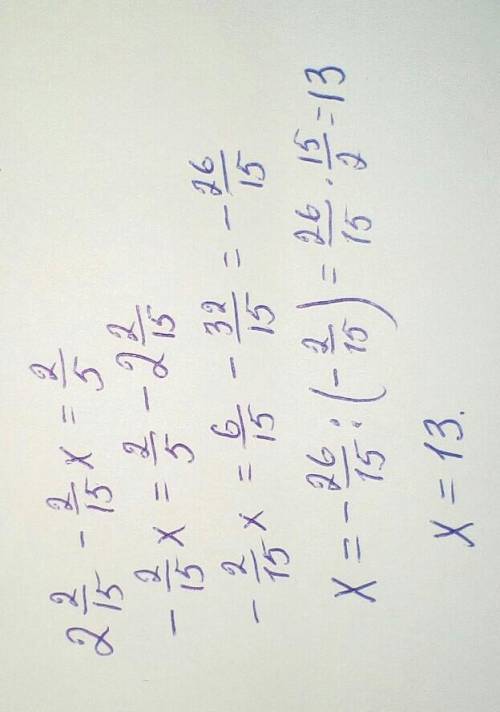 2 2/15 - 2/15 x = 2/5
- 2/15 x = 2/5 - 2 2/15
- 2/15 x = 6/15 - 32/15 = - 26/15
x = - 26/15 : (- 2/15) = 26/15 · 15/2 = 13
x = 13.